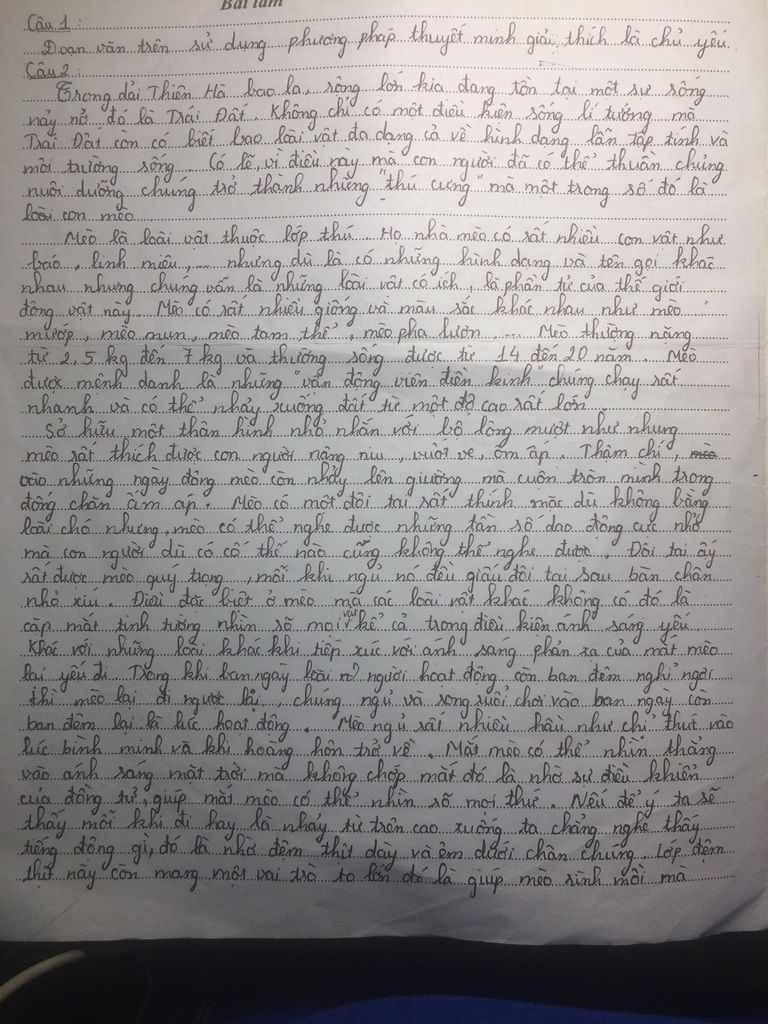 Bài làm
Câu 1 :
Đoạn văn trên sử dụng phương pháp thuyết minh giải thích là chủ yếu.
Câu 2 :
Trong dải Thiên Hà bao la, rộng lớn kia đang tồn tại một sự sống
nảy nở đó là Trái Đất. Không chỉ có một điều kiện sống lí tưởng mà
Trái Đất còn có biết bao loài vật đa dạng cả về hình dạng lẫn tập tính và
môi trường sống... Có lẽ, vì điều này mà con người đã có thể thuần chủng
nuôi dưỡng chúng trở thành những "thú cưng" mà một trong số đó là
loài con mèo
Mèo là loài vật thuộc lớp thú. Họ nhà mèo có rất nhiều con vật như
báo, linh miêu,... nhưng dù là có những hình dạng và tên gọi khác
nhau nhưng chúng vẫn là những loài vật có ích, là phần tử của thế giới
động vật này. Mèo có rất nhiều giống và màu sắc khác nhau như mèo
mướp, mèo mun, mèo tam thể, mèo pha lươn,... Mèo thường nặng
từ 2,5 kg đến 7 kg và thường sống được từ 14 đến 20 năm. Mèo
được mệnh danh là những "vận động viên điền kinh" chúng chạy rất
nhanh và có thể nhảy xuống đất từ một độ cao rất lớn
Sở hữu một thân hình nhỏ nhắn với bộ lông mượt như nhung
mèo rất thích được con người nâng niu, vuốt ve, ôm ấp. Thậm chí, mèo
vào những ngày đông mèo còn nhảy lên giường mà cuộn tròn mình trong
đống chăn ấm áp. Mèo có một đôi tai rất thính mặc dù không bằng
loài chó nhưng, mèo có thể nghe được những tần số dao động cực nhỏ
mà con người dù có cố thế nào cũng không thể nghe được. Đôi tai ấy
rất được mèo quý trọng, mỗi khi ngủ nó đều giấu đôi tai sau bàn chân
nhỏ xíu. Điều đặc biệt ở mèo mà các loài vật khác không có đó là
cặp mắt tinh tường nhìn rõ mọi vật kể cả trong điều kiện ánh sáng yếu.
Khác với những loài khác khi tiếp xúc với ánh sáng phản xạ của mắt mèo
lại yếu đi. Trong khi ban ngày loài người hoạt động còn ban đêm nghỉ ngơi
thì mèo lại đi ngược lại, chúng ngủ và rong ruổi chơi vào ban ngày còn
ban đêm lại là lúc hoạt động. Mèo ngủ rất nhiều hầu như chỉ thức vào
lúc bình minh và khi hoàng hôn trở về. Mắt mèo có thể nhìn thẳng
vào ánh sáng mặt trời mà không chớp mắt đó là nhờ sự điều khiển
của đồng tử, giúp mắt mèo có thể nhìn rõ mọi thứ. Nếu để ý ta sẽ
thấy mỗi khi đi hay là nhảy từ trên cao xuống ta chẳng nghe thấy
tiếng động gì, đó là nhờ đệm thịt dày và êm dưới chân chúng. Lớp đệm
thịt này còn mang một vai trò to lớn đó là giúp mèo rình mồi mà